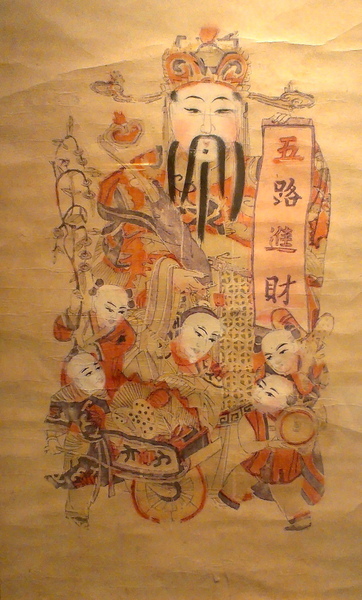 五路進財